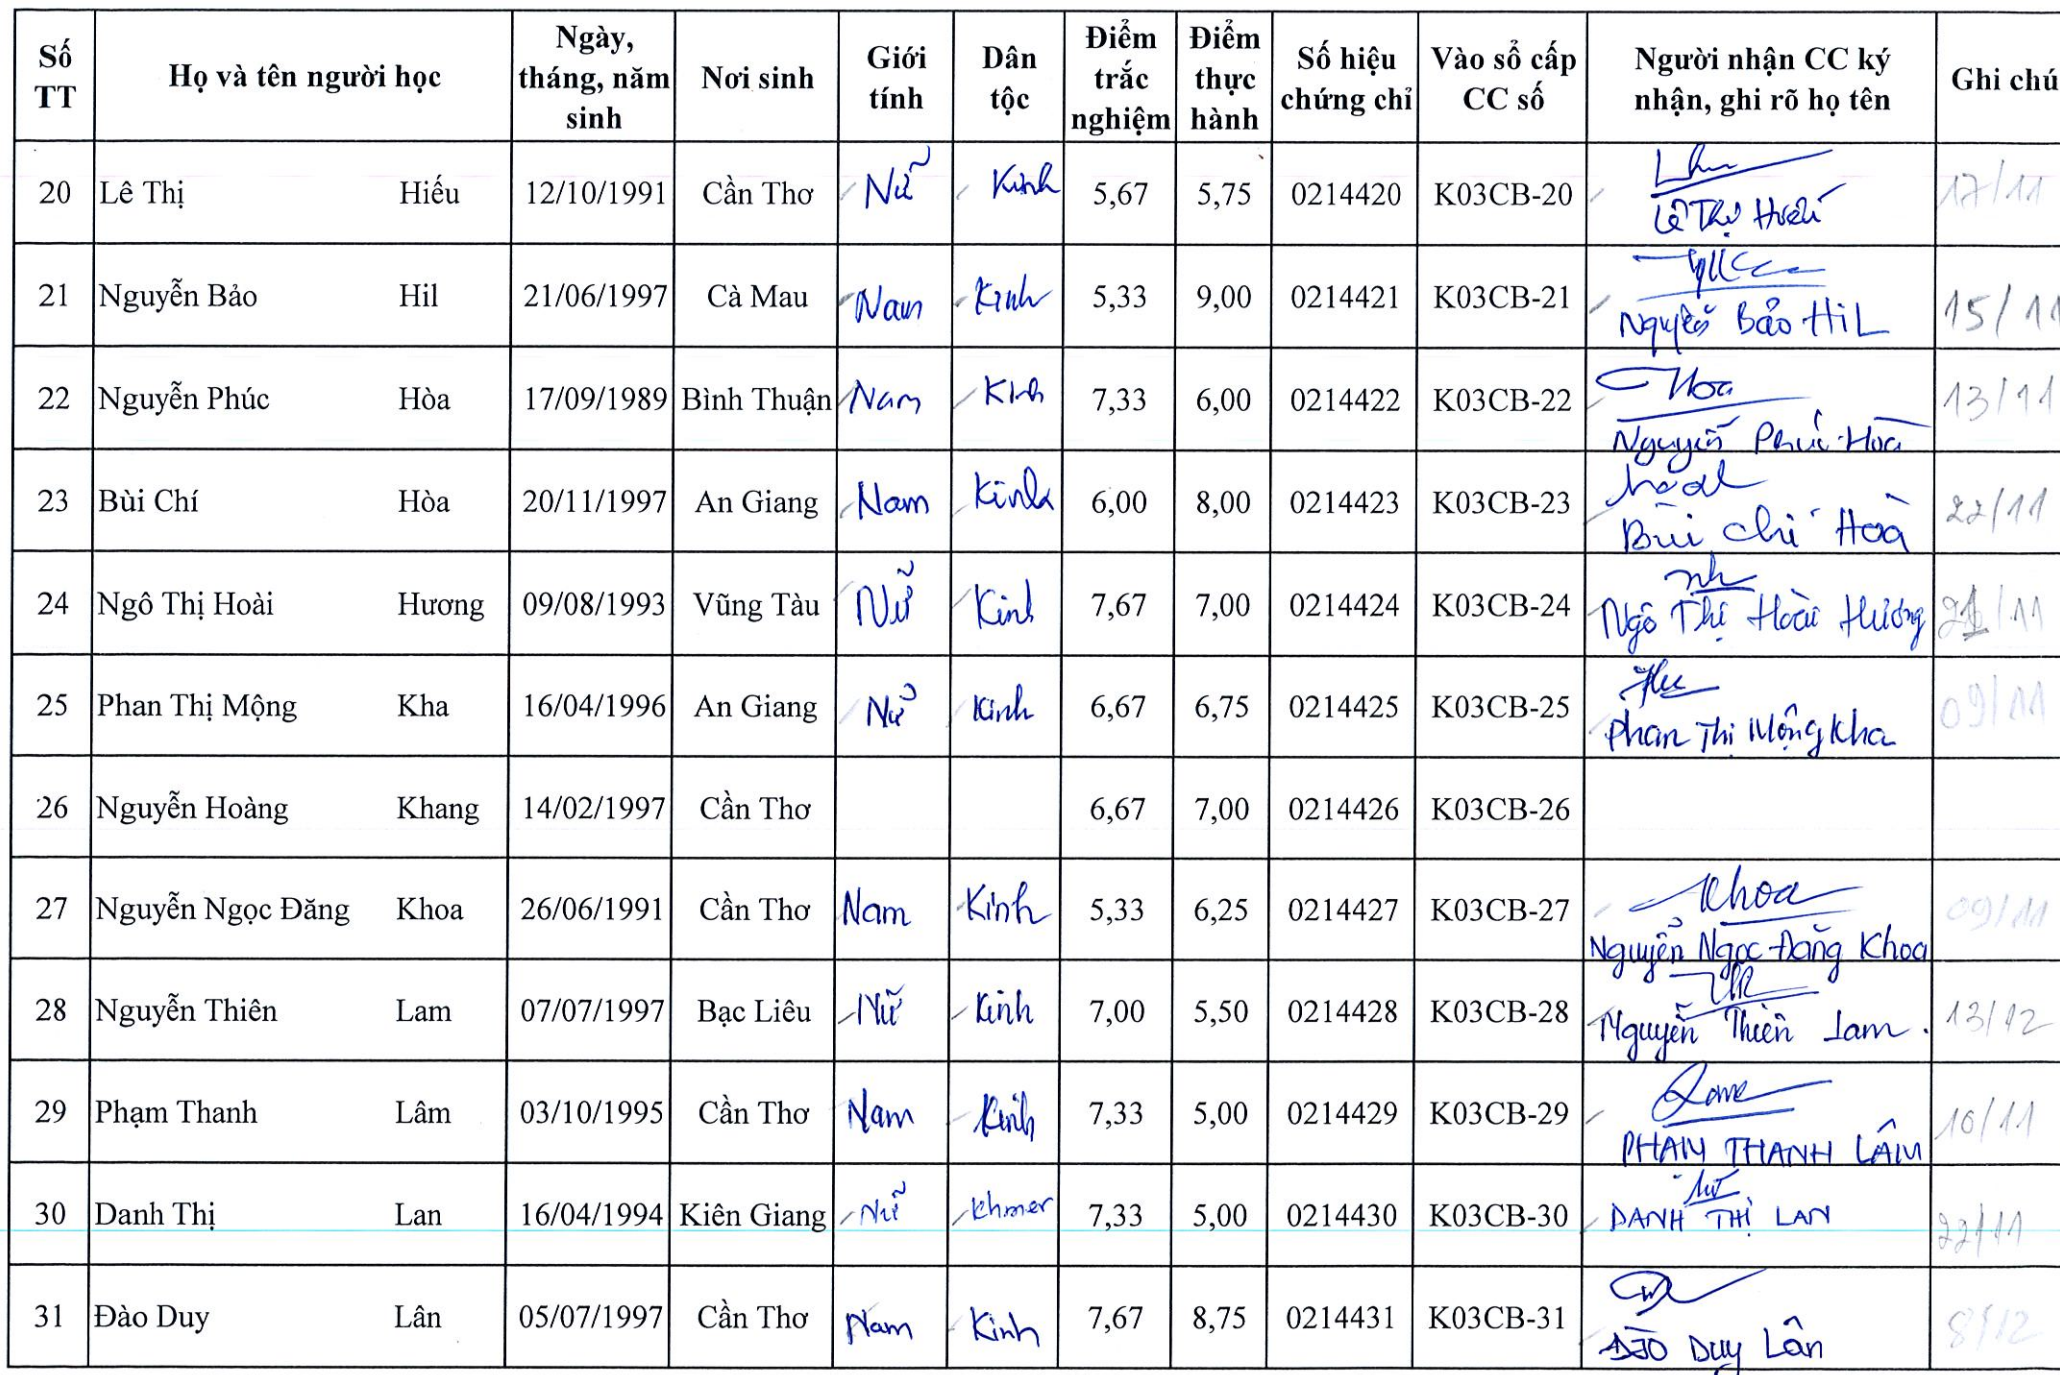 Số TT Họ và tên người học Ngày, tháng, năm sinh Nơi sinh Giới tính Dân tộc Điểm trắc nghiệm Điểm thực hành Số hiệu chứng chỉ Vào sổ cấp CC số Người nhận CC ký nhận, ghi rõ họ tên Ghi chú
20 Lê Thị Hiếu 12/10/1991 Cần Thơ Nữ Kinh 5,67 5,75 0214420 K03CB-20 Lê Thị Hiếu 17/11
21 Nguyễn Bảo Hil 21/06/1997 Cà Mau Nam Kinh 5,33 9,00 0214421 K03CB-21 Nguyễn Bảo HiL 15/11
22 Nguyễn Phúc Hòa 17/09/1989 Bình Thuận Nam Kinh 7,33 6,00 0214422 K03CB-22 Hoa Nguyễn Phúc Hòa 13/11
23 Bùi Chí Hòa 20/11/1997 An Giang Nam Kinh 6,00 8,00 0214423 K03CB-23 Bùi Chí Hoà 22/11
24 Ngô Thị Hoài Hương 09/08/1993 Vũng Tàu Nữ Kinh 7,67 7,00 0214424 K03CB-24 Ngô Thị Hoài Hương
25 Phan Thị Mộng Kha 16/04/1996 An Giang Nữ Kinh 6,67 6,75 0214425 K03CB-25 Phan Thị Mộng Kha 09/11
26 Nguyễn Hoàng Khang 14/02/1997 Cần Thơ 6,67 7,00 0214426 K03CB-26
27 Nguyễn Ngọc Đăng Khoa 26/06/1991 Cần Thơ Nam Kinh 5,33 6,25 0214427 K03CB-27 Khoa Nguyễn Ngọc Đăng Khoa 09/11
28 Nguyễn Thiên Lam 07/07/1997 Bạc Liêu Nữ Kinh 7,00 5,50 0214428 K03CB-28 Nguyễn Thiên Lam. 13/12
29 Phạm Thanh Lâm 03/10/1995 Cần Thơ Nam Kinh 7,33 5,00 0214429 K03CB-29 PHẠM THANH LÂM 10/11
30 Danh Thị Lan 16/04/1994 Kiên Giang Nữ Khmer 7,33 5,00 0214430 K03CB-30 DANH THỊ LAN 22/11
31 Đào Duy Lân 05/07/1997 Cần Thơ Nam Kinh 7,67 8,75 0214431 K03CB-31 ĐÀO DUY Lân 8/12